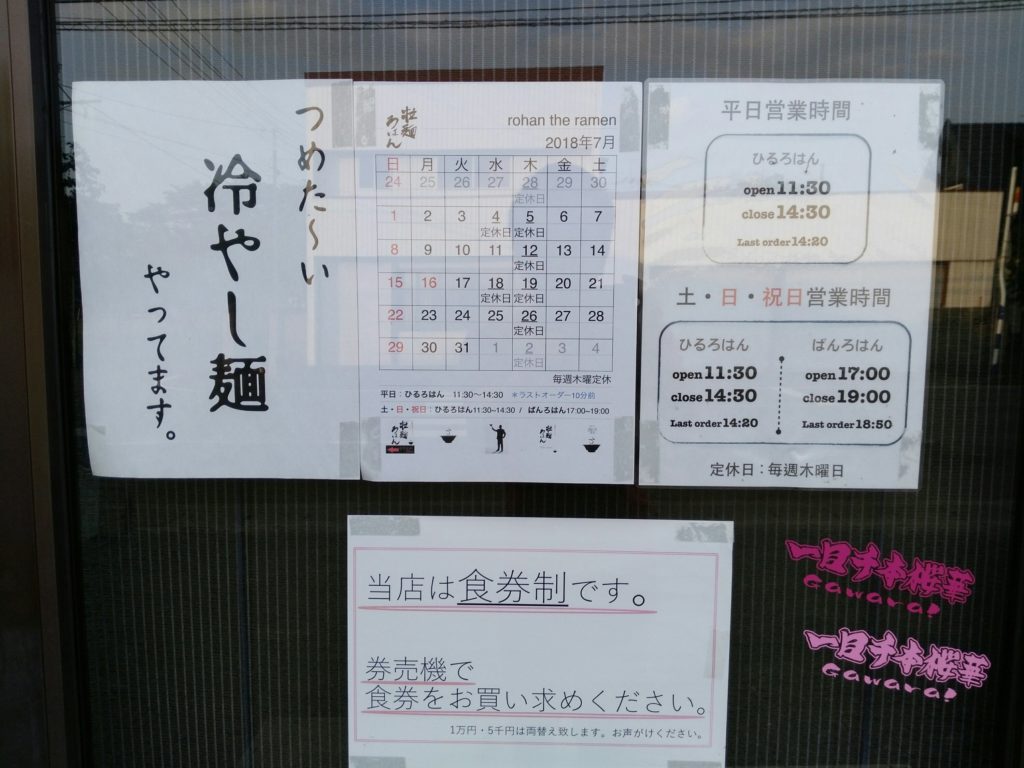 つめた～い
冷やし麺
やってます。
牡蠣ろはん
rohan the ramen
2018年7月
日 月 火 水 木 金 土
24 25 26 27 28 29 30
定休日
1 2 3 4 5 6 7
定休日 定休日
8 9 10 11 12 13 14
定休日
15 16 17 18 19 20 21
定休日 定休日
22 23 24 25 26 27 28
定休日
29 30 31 1 2 3 4
定休日
毎週木曜定休
平日：ひるろはん 11:30～14:30 ＊ラストオーダー10分前
土・日・祝日：ひるろはん11:30~14:30 / ばんろはん17:00~19:00
平日営業時間
ひるろはん
open 11:30
close 14:30
Last order 14:20
土・日・祝日営業時間
ひるろはん
open 11:30
close 14:30
Last order 14:20
ばんろはん
open 17:00
close 19:00
Last order 18:50
定休日：毎週木曜日
当店は食券制です。
券売機で
食券をお買い求めください。
1万円・5千円は両替え致します。お声がけください。
一目千本桜華
Gawara!
一目千本桜華
Gawara!